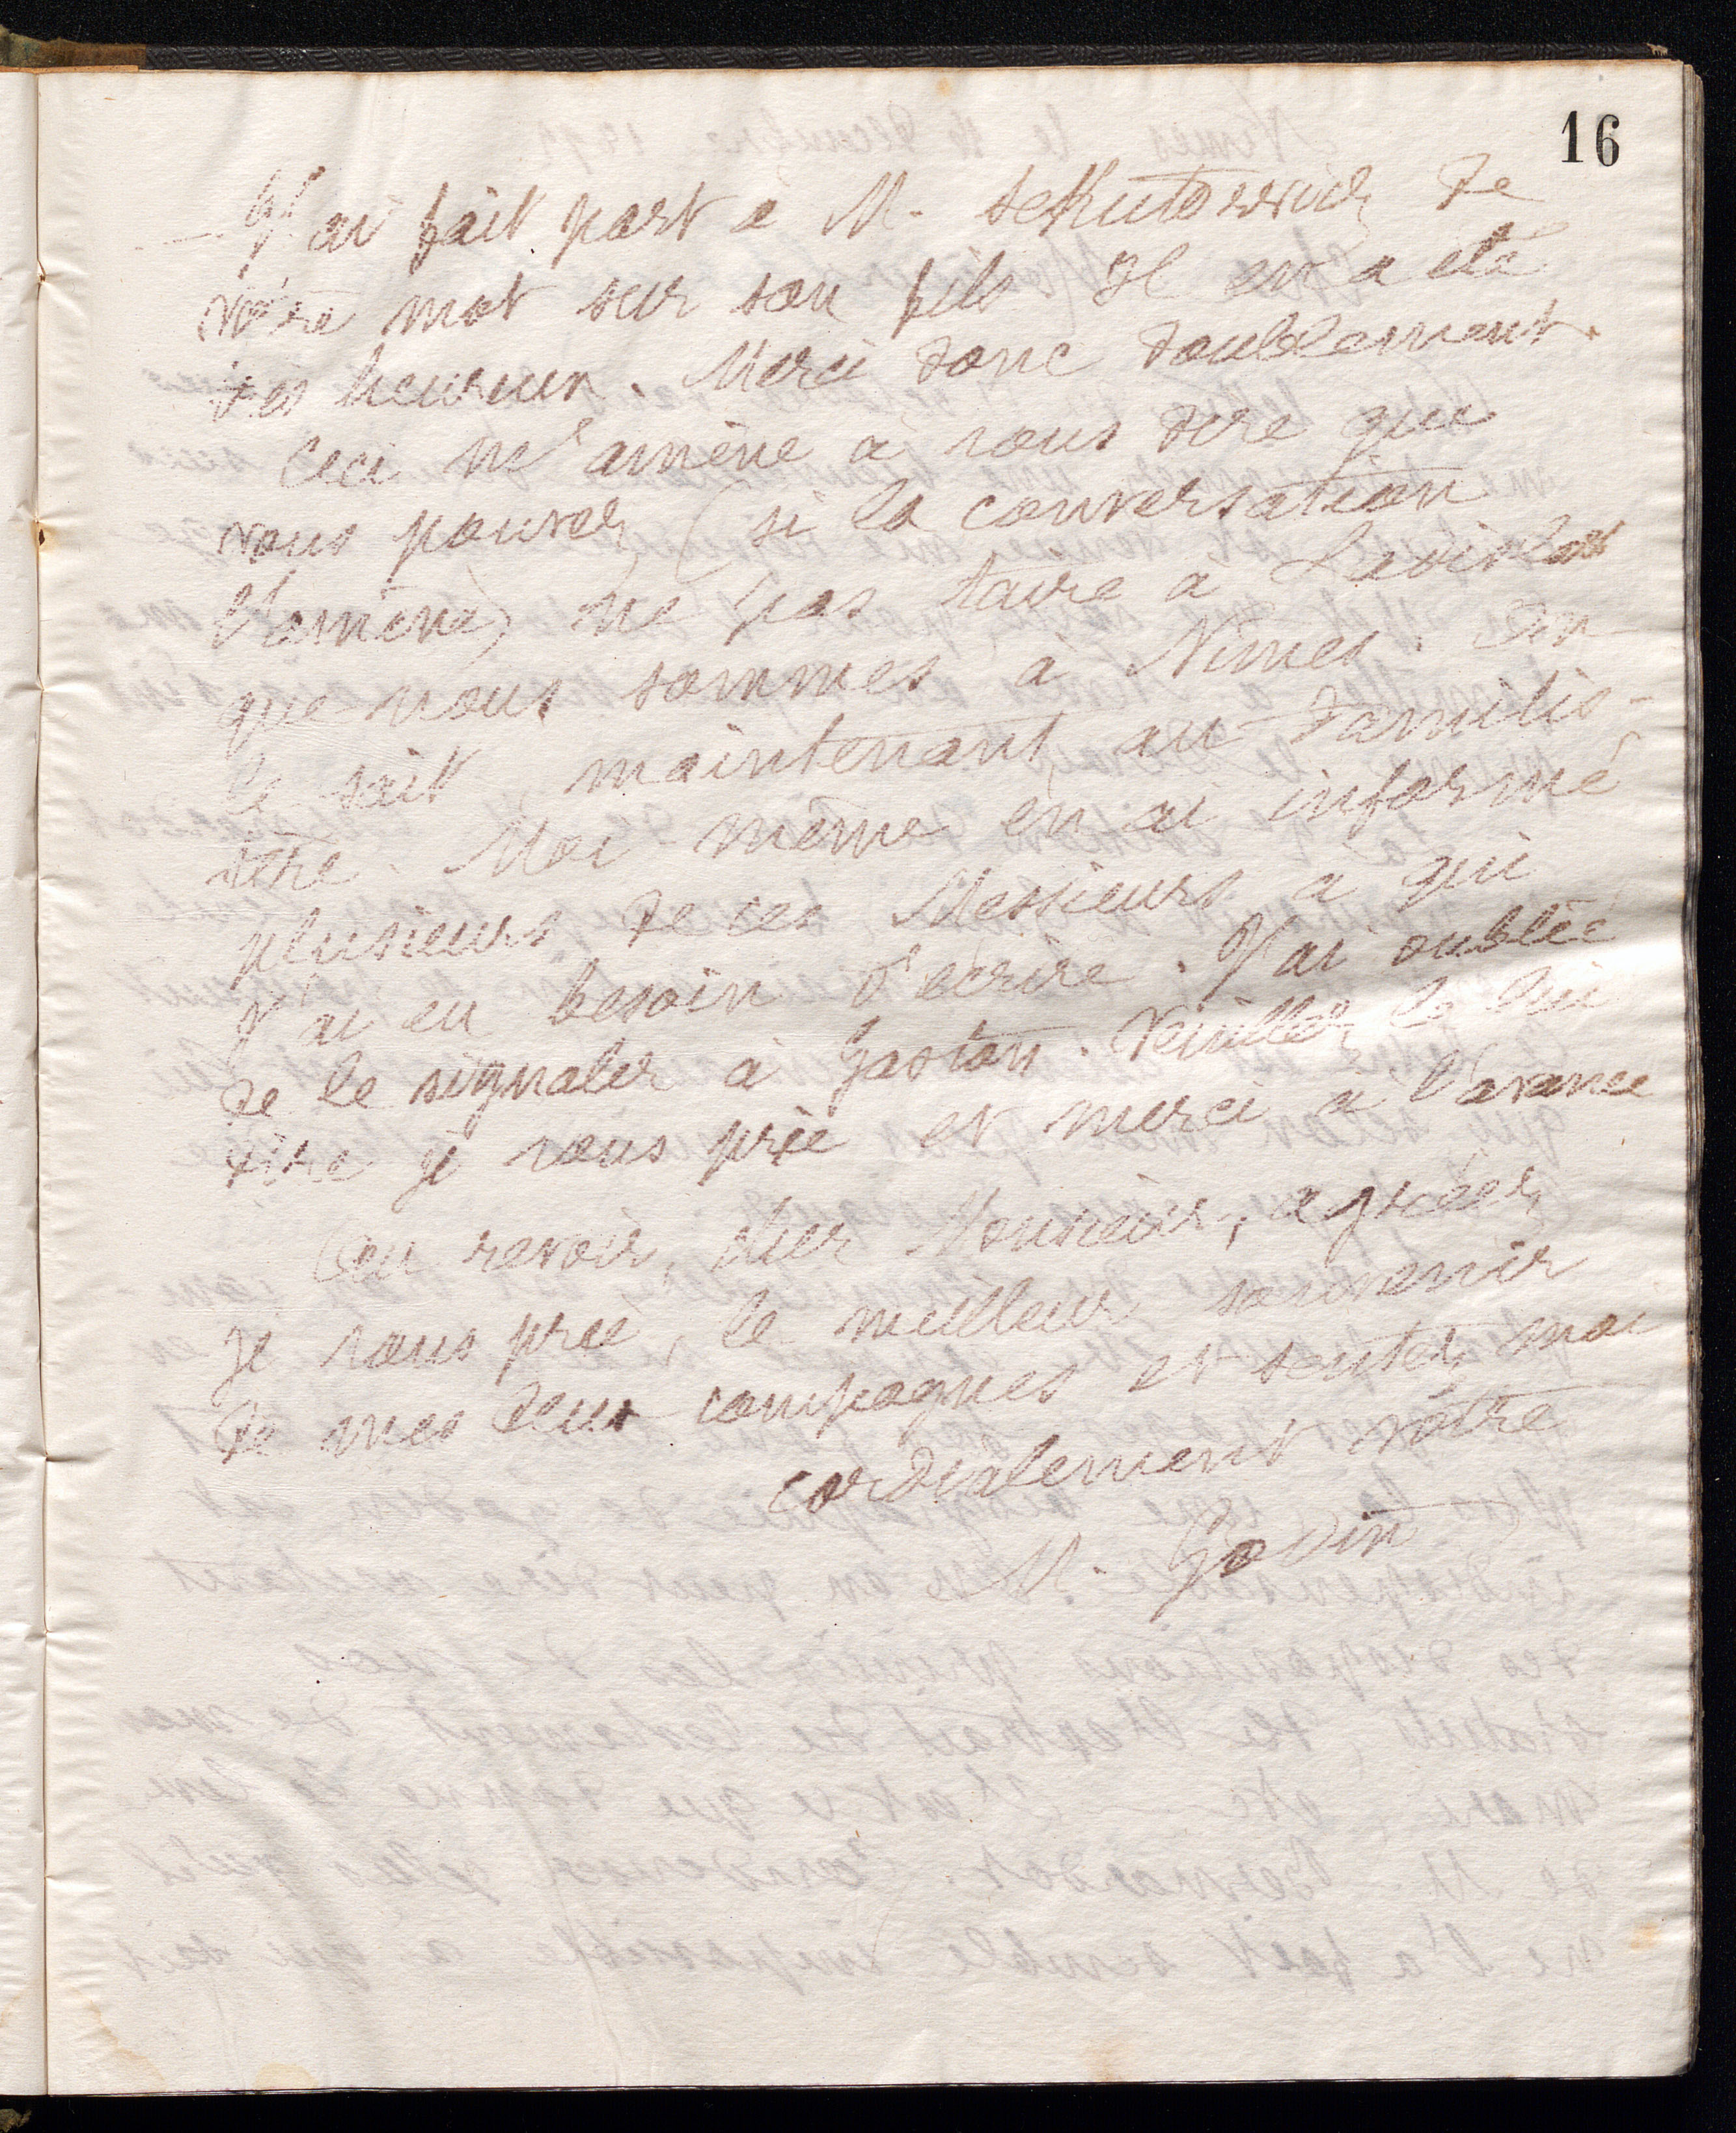 16
J'ai fait part à M. Sekutowicz de
votre mot sur son fils Il en a été
très heureux. Merci donc doublement.
Ceci m'amène à vous dire que
vous pouvez (si la conversation
l'amène) ne pas taire à
que nous sommes à Nimes. On
le sait maintenant au Familis-
tère. Moi même en ai informé
plusieurs de ces Messieurs à qui
j'ai eu besoin d'écrire. J'ai oublié
de le signaler à Gaston. Veuillez le lui
dire je vous prie et merci à l'avance
Au revoir, cher Monsieur, agréez,
je vous prie, le meilleur souvenir
de mes deux compagnes et sentez moi
cordialement vôtre
M. Godin